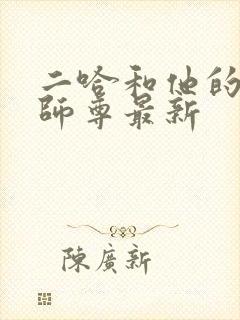 二哈和他的
師尊最新
陳廣新